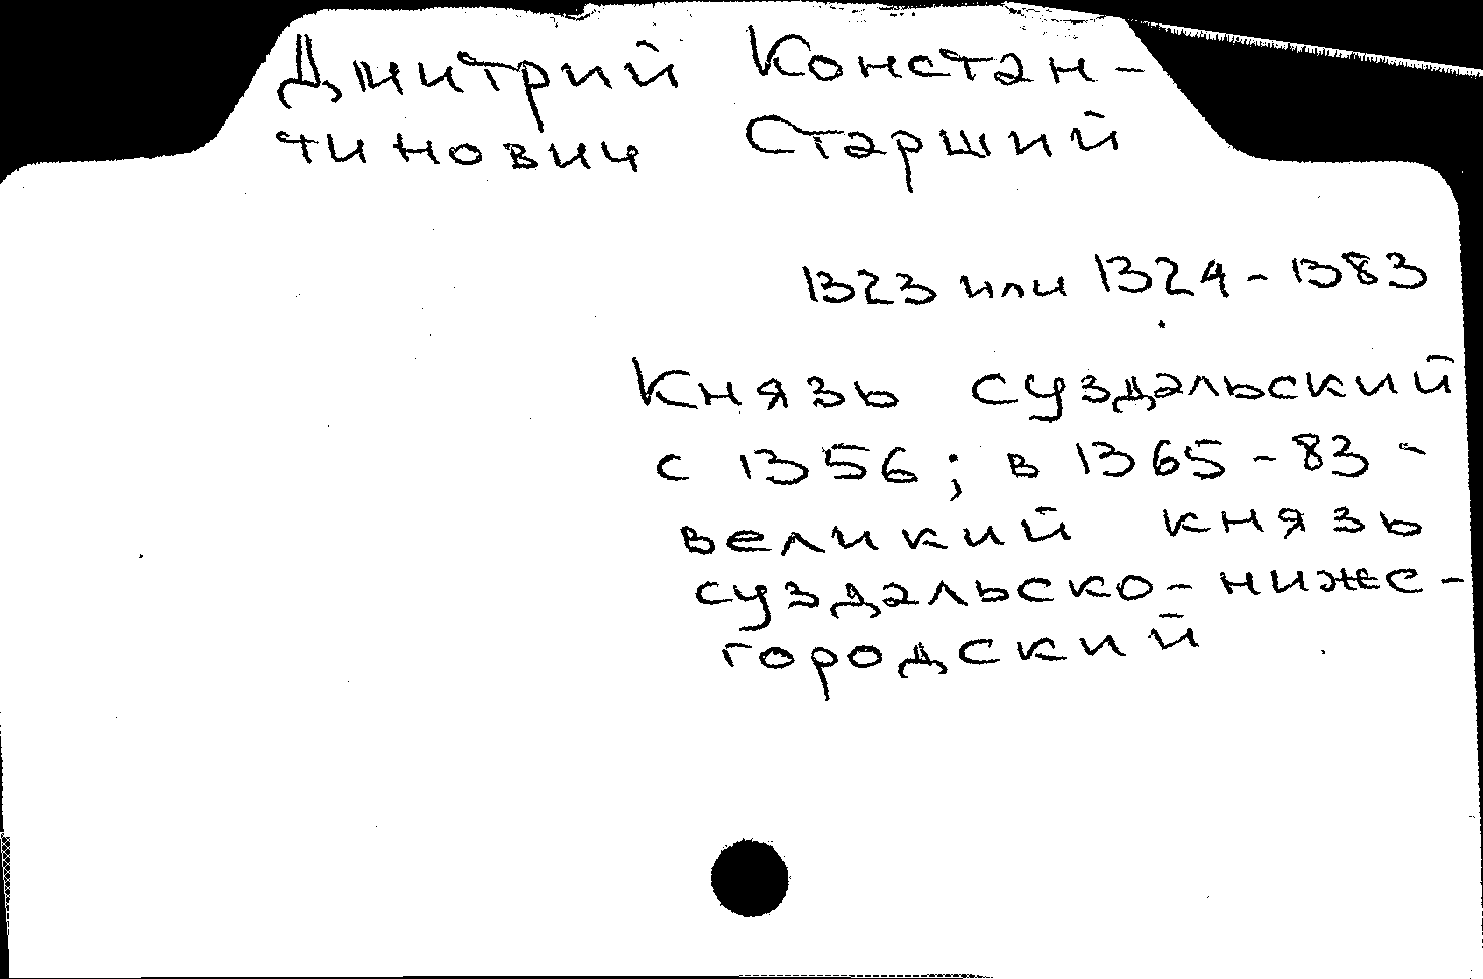 Дмитрий Констан-
тинович Старший
1323 или 1324-1383
Князь суздальский
с 1356; в 1365-83 -
великий князь
суздальско-ниже-
городский